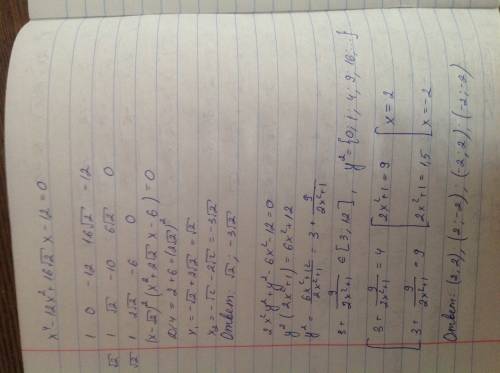 x⁴-12x²+16√2 x-12=0
1 0 -12 16√2 -12
√2 1 √2 -10 6√2 0
√2 1 2√2 -6 0
(x-√2)² (x²+2√2 x-6)=0
D/4=2+6=(2√2)²
x₁=-√2+2√2=√2
x₂=-√2-2√2=-3√2
Ответ: √2; -3√2
2x²y²+y²-6x²-12=0
y²(2x²+1)=6x²+12
y²=(6x²+12)/(2x²+1)=3+9/(2x²+1)
3+9/(2x²+1) ∈ [3,12], y²={0; 1; 4; 9; 16; ...}
[3+9/(2x²+1)=4 [2x²+1=9 [x=2
[3+9/(2x²+1)=9 [2x²+1=1,5 [x=-2
Ответ: (2;2), (2;-2), (-2;2); (-2;-2)